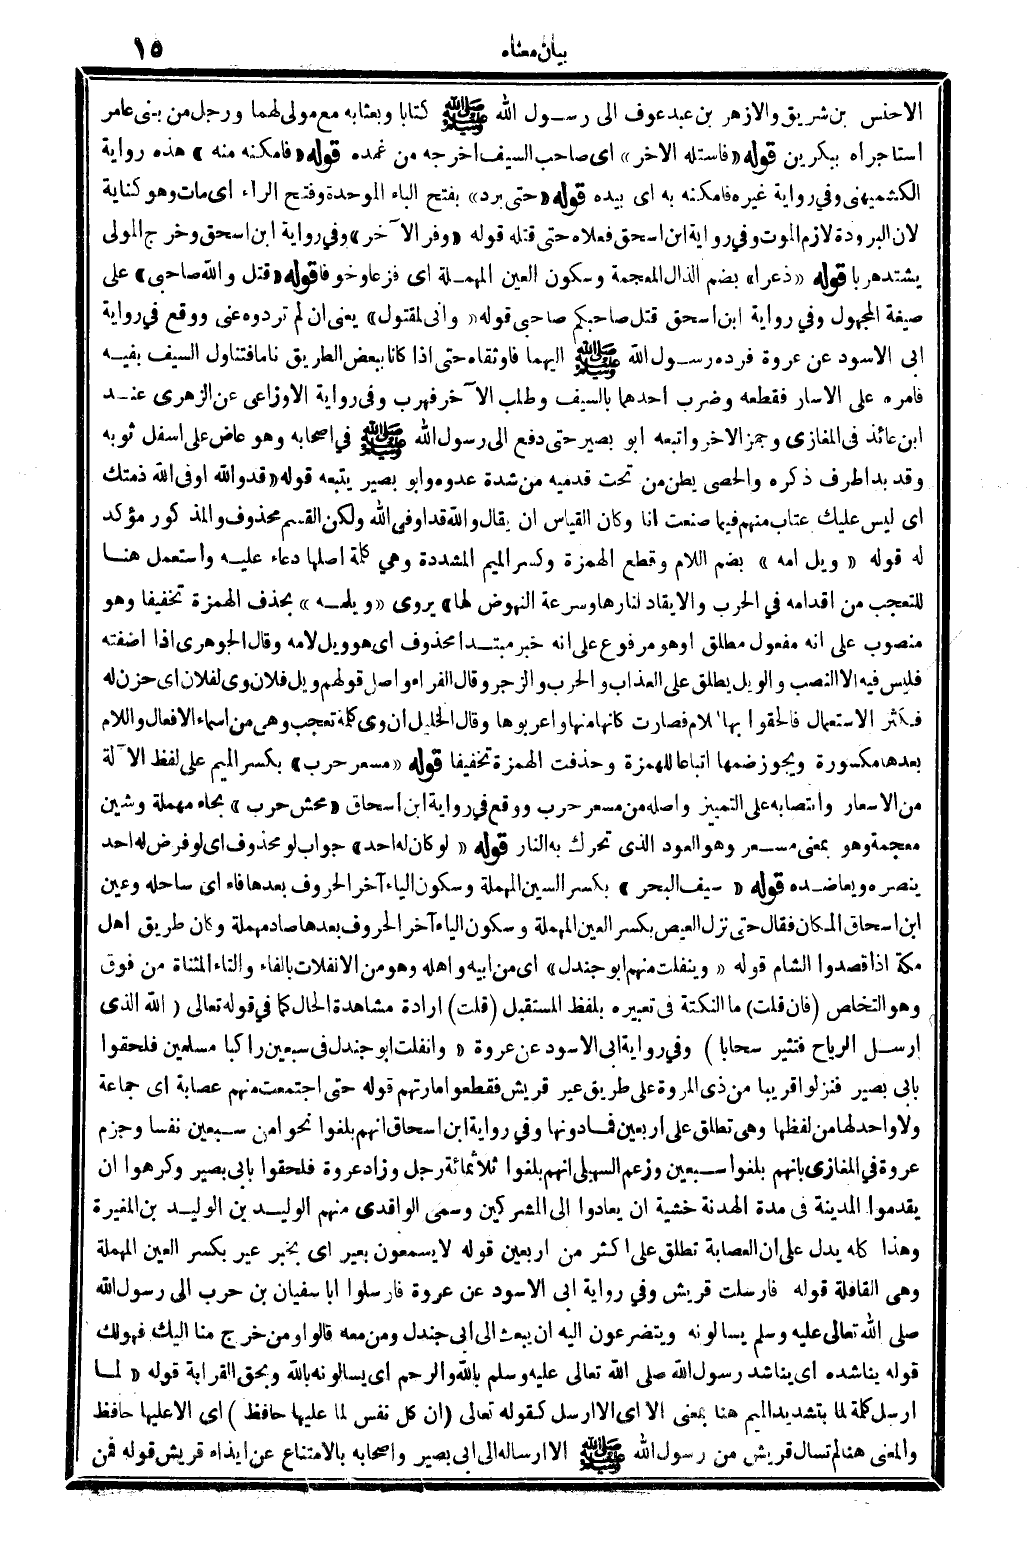 بيان معناه ١٥
الاحنس بن شريق والازهر بن عبدعوف الى رسول الله ﷺ كتابا وبعثا به مع مولى لهما ورجل من بنى عامر
استاجراه ببكرين قوله «فاستله الاخر» اى صاحب السيف اخرجه من غمده قوله «فامكنه منه» هذه رواية
الكشميهنى وفي رواية غيره فامكنه به اى بيده قوله «حتى برد» بفتح الباء الموحدة وفتح الراء اى مات وهو كناية
لان البرودة لازم الموت وفي رواية ابن اسحق فعلاه حتى قتله قوله «وفر الآخر» وفي رواية ابن اسحق وخرج المولى
يشتد هربا قوله «ذعرا» بضم الذال المعجمة وسكون العين المهملة اى فزعا وخوفا قوله «قتل والله صاحبى» على
صيغة المجهول وفي رواية ابن اسحق قتل صاحبكم صاحبى قوله «وانى لمقتول» يعنى ان لم تردوه عنى ووقع في رواية
ابى الاسود عن عروة فرده رسول الله ﷺ اليهما فاوثقاه حتى اذا كانا ببعض الطريق ناما فتناول السيف بفيه
فامره على الاسار فقطعه وضرب احدهما بالسيف وطلب الآخر فهرب وفى رواية الاوزاعى عن الزهرى عند
ابن عائذ فى المغازى وجمز الاخر واتبعه ابو بصير حتى دفع الى رسول الله ﷺ في اصحابه وهو عاض على اسفل ثوبه
وقد بدا طرف ذكره والحصى يطن من تحت قدميه من شدة عدوه وابو بصير يتبعه قوله «قد والله اوفى الله ذمتك
اى ليس عليك عتاب منهم فيما صنعت انا وكان القياس ان يقال والله قد اوفى الله ولكن القسم محذوف والمذكور مؤكد
له قوله «ويل امه» بضم اللام وقطع الهمزة وكسر الميم المشددة وهي كلمة اصلها دعاء عليه واستعمل هنا
للتعجب من اقدامه في الحرب والايقاد لنارها وسرعة النهوض لها» يروى «ويلمه» بحذف الهمزة تخفيفا وهو
منصوب على انه مفعول مطلق او هو مرفوع على انه خبر مبتدا محذوف اى هو ويل لامه وقال الجوهرى اذا اضفته
فليس فيه الا النصب والويل يطلق على العذاب والحرب والزجر وقال الفراء واصل قولهم ويل فلان وى لفلان اى حزن له
فكثر الاستعمال فالحقوا بها اللام فصارت كانها منها واعربوها وقال الخليل ان وى كلمة تعجب وهى من اسماء الافعال واللام
بعدها مكسورة ويجوز ضمها اتباعا للهمزة وحذفت الهمزة تخفيفا قوله «مسعر حرب» بكسر الميم على لفظ الآلة
من الاسعار وانتصابه على التمييز واصله من مسعر حرب ووقع في رواية ابن اسحاق «محش حرب» بحاء مهملة وشين
معجمة وهو بمعنى مسعر وهو العود الذى تحرك به النار قوله «لو كان له احد» جواب لو محذوف اى لو فرض له احد
ينصره ويعاضده قوله «سيف البحر» بكسر السين المهملة وسكون الياء آخر الحروف بعدها فاء اى ساحله وعين
ابن اسحاق المكان فقال حتى نزل العيص بكسر العين المهملة وسكون الياء آخر الحروف بعدها صاد مهملة وكان طريق اهل
مكة اذا قصدوا الشام قوله «وينفلت منهم ابو جندل» اى من ابيه واهله وهو من الانفلات بالفاء والتاء المثناة من فوق
وهو التخلص (فان قلت) ما النكتة فى تعبيره بلفظ المستقبل (قلت) ارادة مشاهدة الحال كما في قوله تعالى (الله الذى
ارسل الرياح فتثير سحابا) وفي رواية ابى الاسود عن عروة «وانفلت ابو جندل فى سبعين راكبا مسلمين فلحقوا
بابى بصير فنزلوا قريبا من ذى المروة على طريق عير قريش فقطعوا مارتهم قوله حتى اجتمعت منهم عصابة اى جماعة
ولا واحد لها من لفظها وهى تطلق على اربعين فما دونها وفي رواية ابن اسحاق انهم بلغوا نحوا من سبعين نفسا وجزم
عروة في المغازى بانهم بلغوا سبعين وزعم السهيلى انهم بلغوا ثلاثمائة رجل وزاد عروة فلحقوا بابى بصير وكرهوا ان
يقدموا المدينة فى مدة الهدنة خشية ان يعادوا الى المشركين وسمى الواقدى منهم الوليد بن الوليد بن المغيرة
وهذا كله يدل على ان العصابة تطلق على اكثر من اربعين قوله لا يسمعون بعير اى بخبر عير بكسر العين المهملة
وهى القافلة قوله فارسلت قريش وفي رواية ابى الاسود عن عروة فارسلوا ابا سفيان بن حرب الى رسول الله
صلى الله تعالى عليه وسلم يسالونه ويتضرعون اليه ان يبعث الى ابى جندل ومن معه قالوا ومن خرج منا اليك فهو لك
قوله يناشده اى يناشد رسول الله صلى الله تعالى عليه وسلم بالله والرحم اى يسالونه بالله وبحق القرابة قوله «لما
ارسل كلمة لما بتشديد الميم هنا بمعنى الا اى الا ارسل كقوله تعالى (ان كل نفس لما عليها حافظ) اى الا عليها حافظ
والمعنى هنا لم تسال قريش من رسول الله ﷺ الا ارساله الى ابى بصير واصحابه بالامتناع عن ايذاء قريش قوله فمن